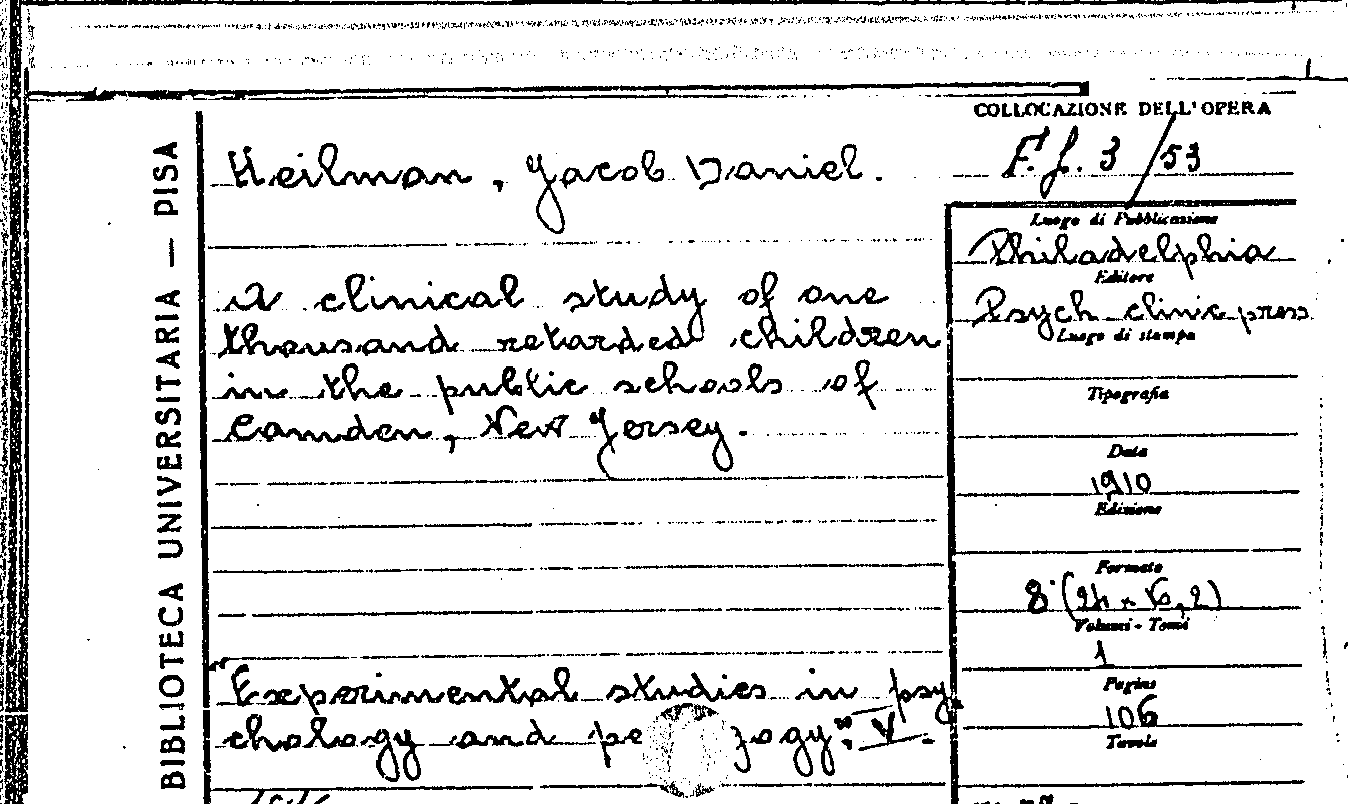 COLLOCAZIONE DELL'OPERA
F. J. 3/53
BIBLIOTECA UNIVERSITARIA — PISA
Heilman, Jacob Daniel.
A clinical study of one
thousand retarded children
in the public schools of
Camden, New Jersey.
"Experimental studies in psy
chology and pe gogy". V.
Luogo di Pubblicazione
Philadelphia
Editore
Psych clinic press
Luogo di stampa
Tipografia
Data
1910
Edizione
Formato
8° (24 x 16,2)
Volumi - Tomi
1
Pagine
106
Tavole